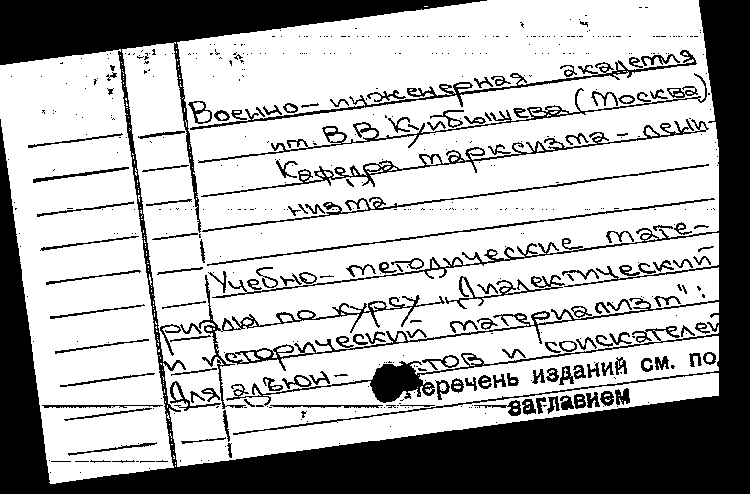 Военно-инженерная академия
им. В.В. Куйбышева (Москва).
Кафедра марксизма-лени-
низма.
Учебно-методические мате-
риалы по курсу "Диалектический
и исторический материализм":
Для адъюн- ктов и соискателей
Перечень изданий см. по
заглавием